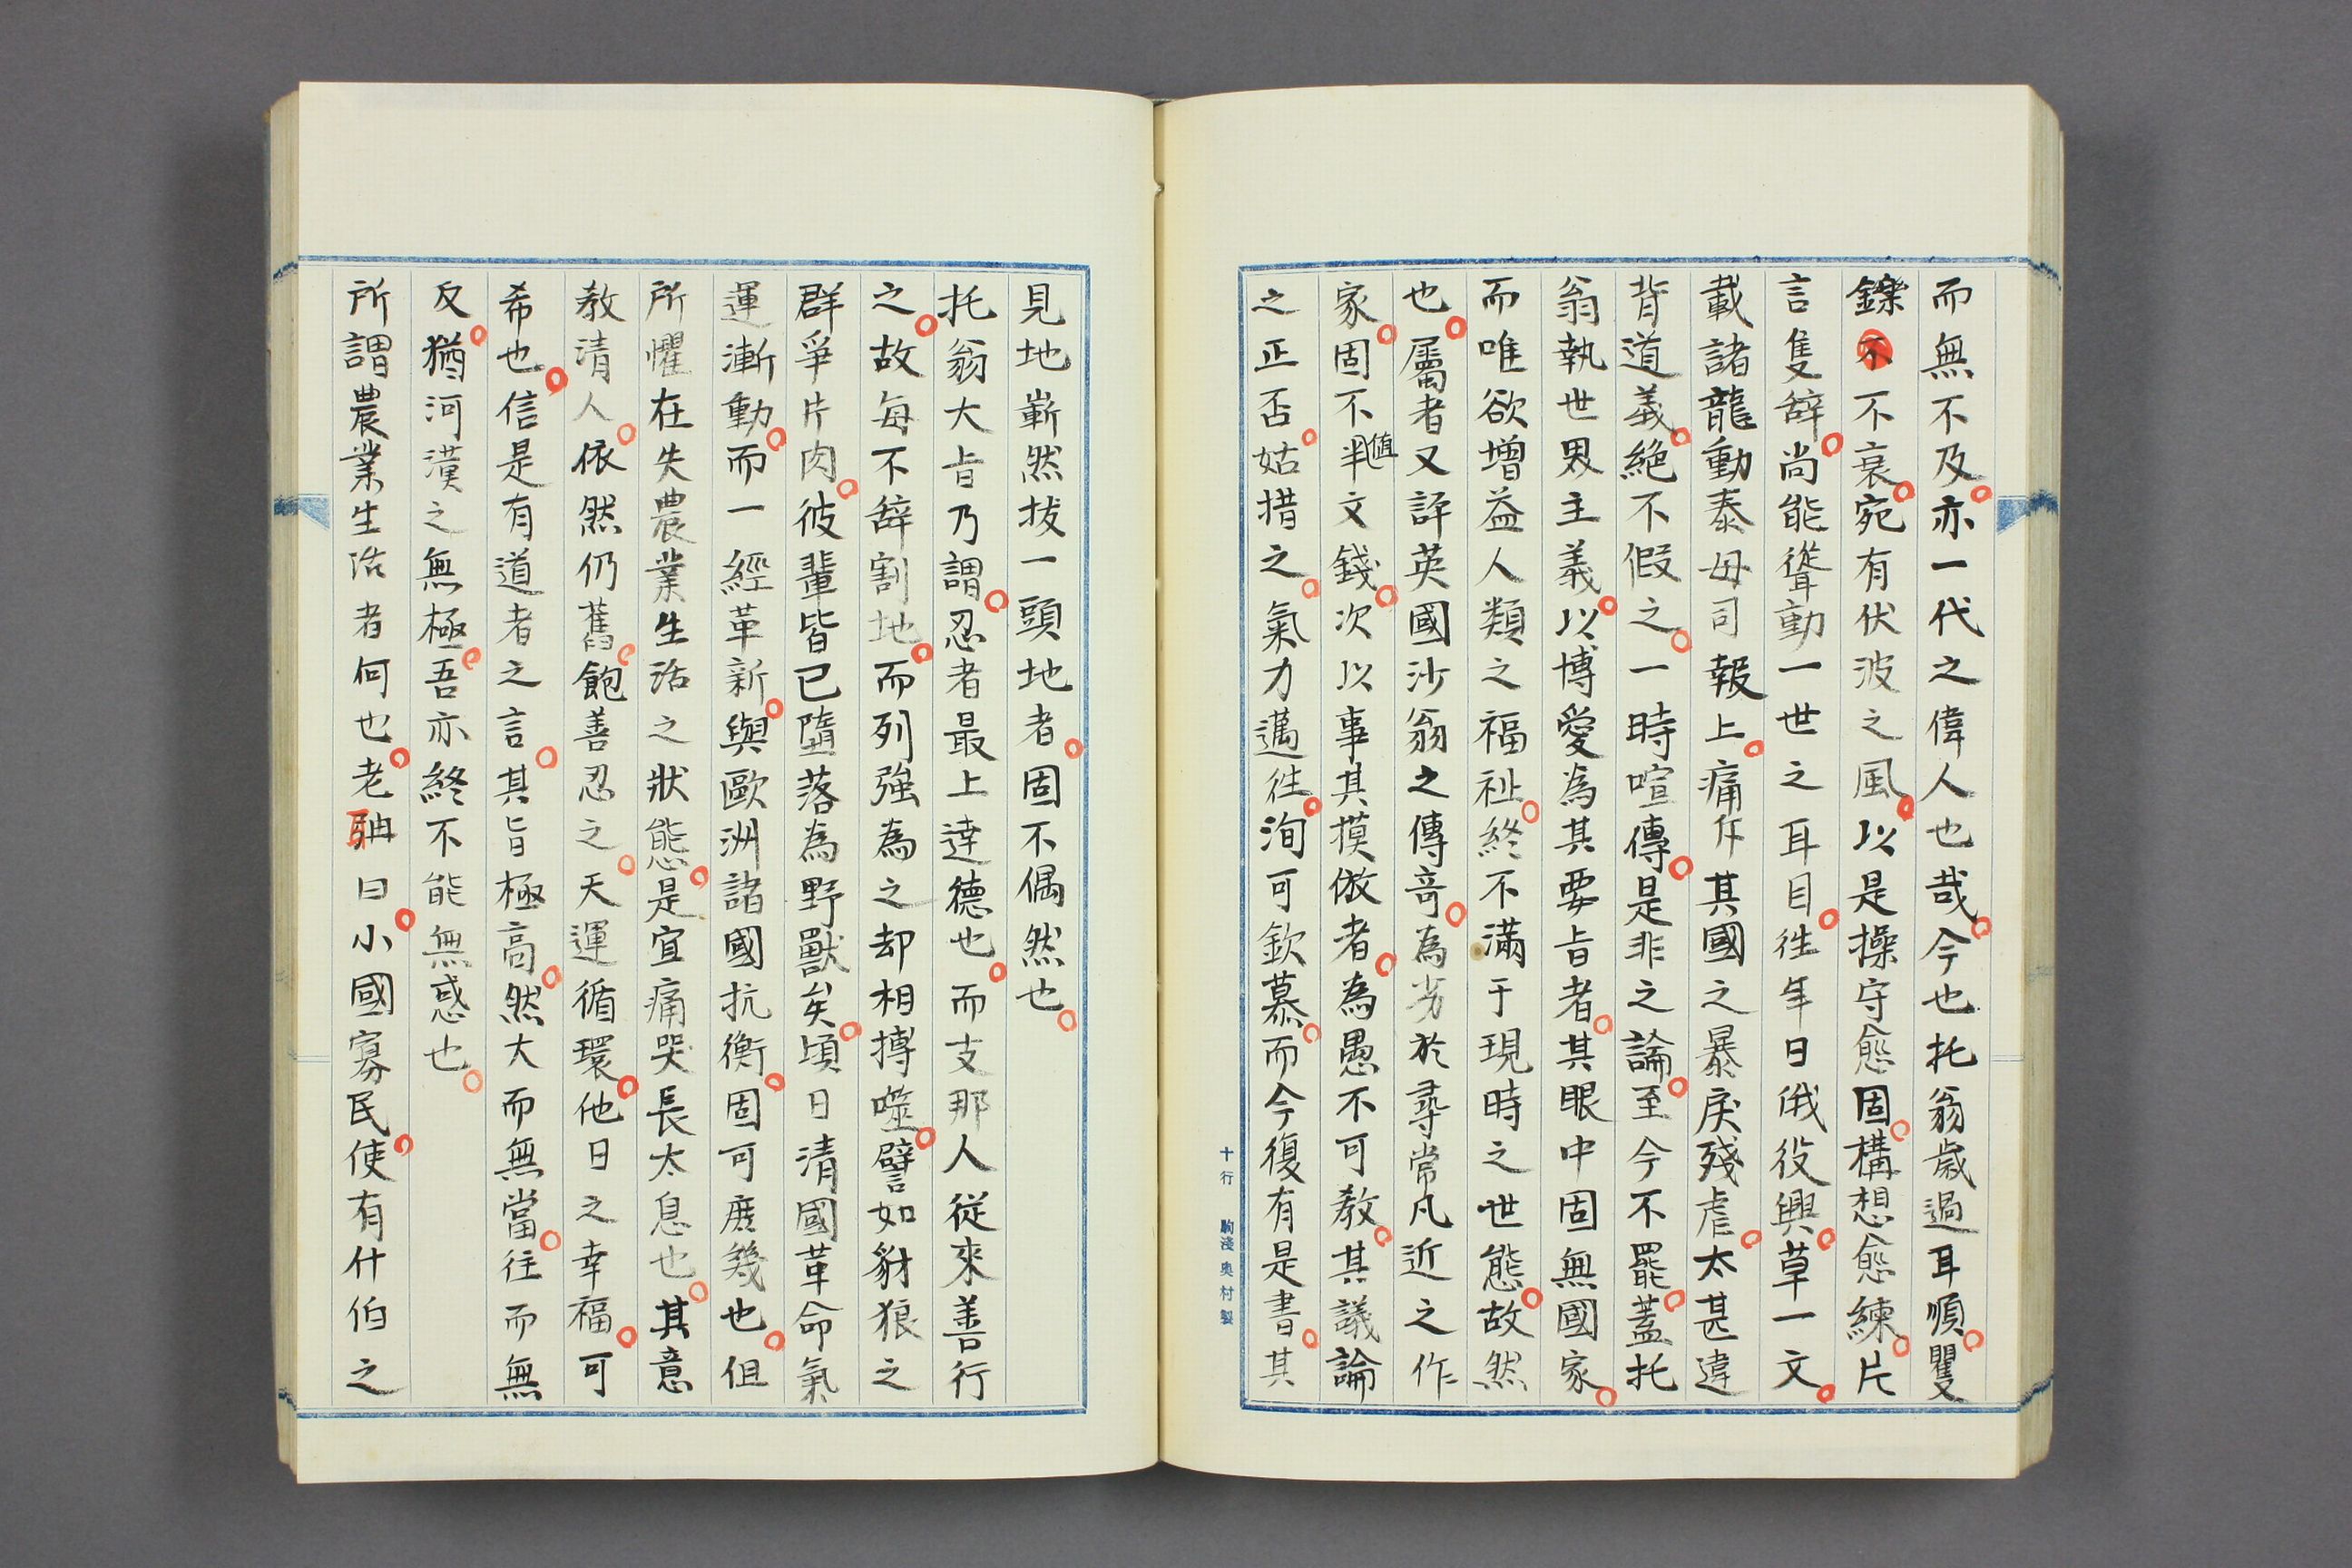 而無不及。亦一代之偉人也哉。今也托翁歲過耳順。矍
鑠不不衰。宛有伏波之風。以是操守愈固。構想愈練。片
言隻辭。尚能聳動一世之耳目。往年日俄役興。草一文。
載諸龍動泰母司報上。痛斥其國之暴戾殘虐。太甚違
背道義。絕不假之。一時喧傳。是非之論。至今不罷。蓋托
翁執世界主義。以博愛為其要旨者。其眼中固無國家。
而唯欲增益人類之福祉。終不滿于現時之世態。故然
也。屬者又評英國沙翁之傳奇。為劣於尋常凡近之作
家。固不值半文錢。次以事其摸倣者。為愚不可教。其議論
之正否。姑措之。氣力邁往。洵可欽慕。而今復有是書。其
十行 駒淺奧村製
見地嶄然拔一頭地者。固不偶然也。
托翁大旨乃謂。忍者最上達德也。而支那人從來善行
之。故每不辭割地。而列強為之却相搏噬。譬如豺狼之
群爭片肉。彼輩皆已墮落為野獸矣。頃日清國革命氣
運漸動。而一經革新。與歐洲諸國抗衡。固可庶幾也。但
所懼在失農業生活之狀態。是宜痛哭長太息也。其意
教清人。依然仍舊。飽善忍之。天運循環。他日之幸福。可
希也。信是有道者之言。其旨極高。然大而無當。往而無
反。猶河漢之無極。吾亦終不能無惑也。
所謂農業生活者何也。老聃曰。小國寡民。使有什伯之